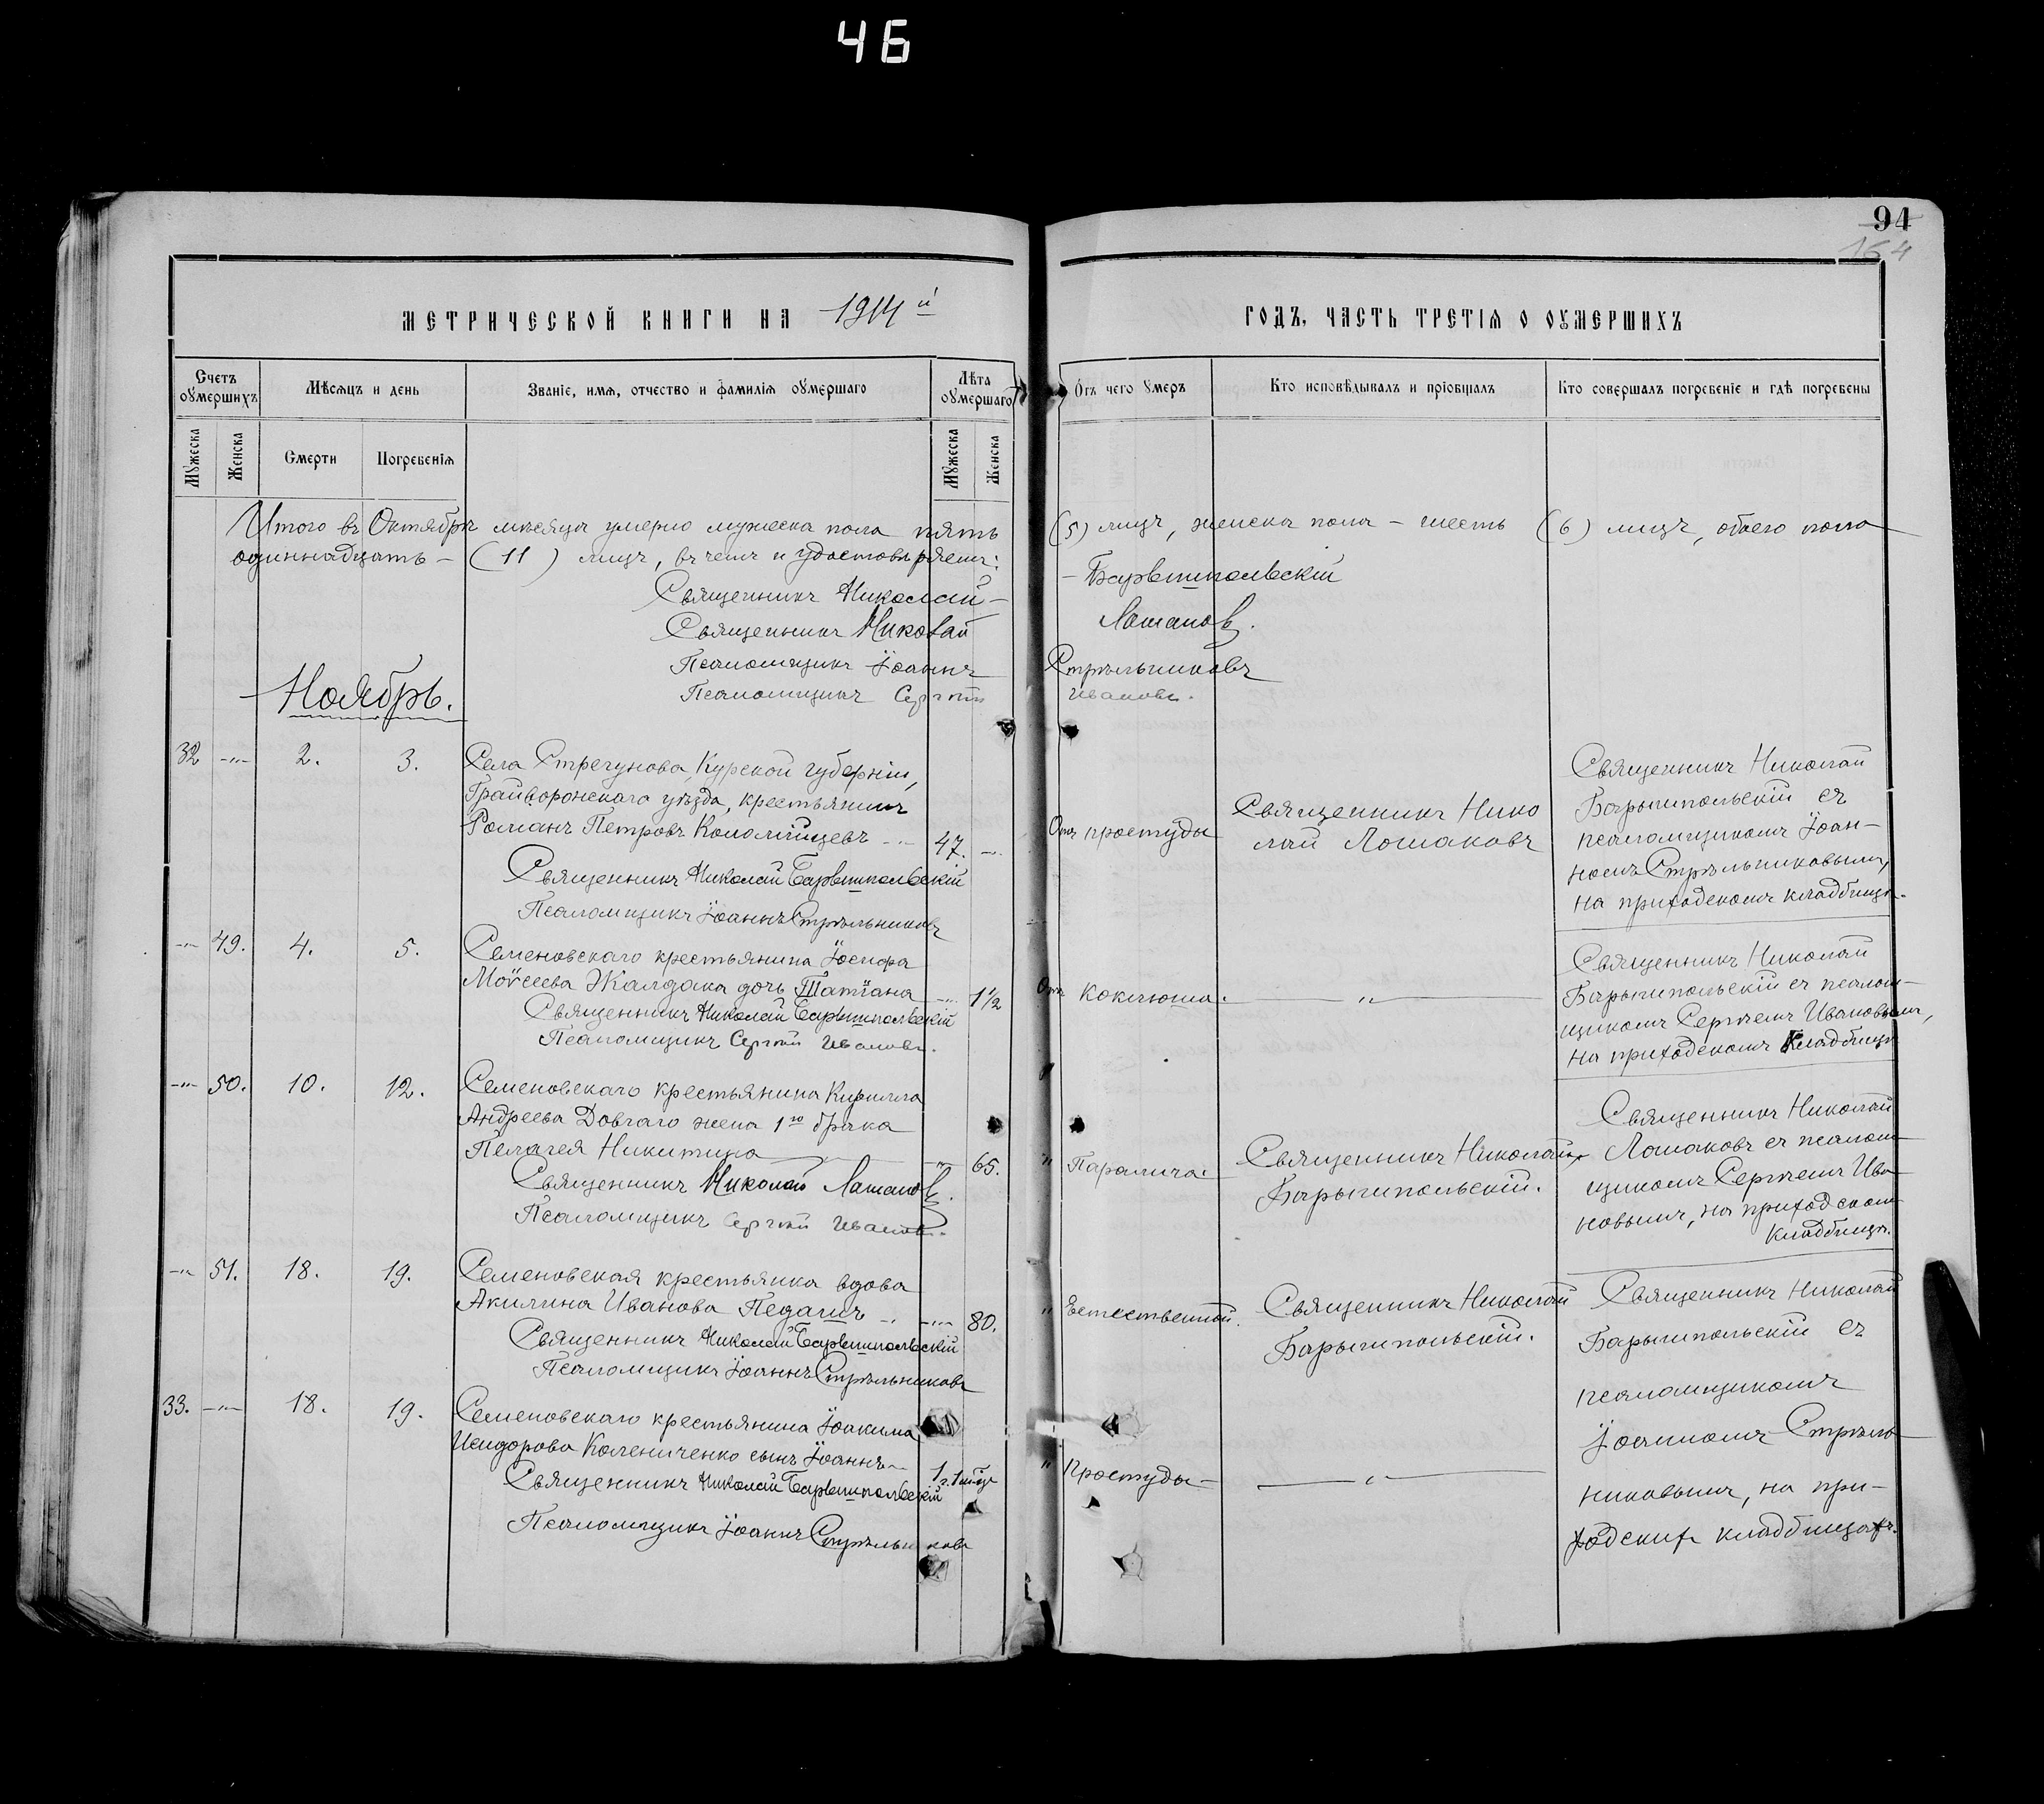 46
94
154
МЕТРИЧЕСКОЙ КНИГИ НА 1914й
ГОДЪ, ЧАСТЬ ТРЕТІЯ О ОУМЕРШИХЪ
Счетъ оумершихъ
Мѣсяцъ и день
Званіе, имя, отчество и фамилія оумершаго
Лѣта оумершаго
Отъ чего умеръ
Кто исповѣдывалъ и пріобщалъ
Кто совершалъ погребеніе и гдѣ погребены
Мужеска
Женска
Смерти
Погребенія
Мужеска
Женска
Итого въ Октябрѣ мѣсяцѣ умерло мужеска пола пять (5) лицъ, женска пола – шесть (6) лицъ, обоего пола
одиннадцать – (11) лицъ, въ чемъ и удостовѣряемъ:
Священникъ Николай – Барышпольскій
Священникъ Николай Лошаковъ.
Псаломщикъ Іоаннъ Стрѣльниковъ
Псаломщикъ Сергѣй Ивановъ.
Ноябрь.
32 -"- 2. 3.
Села Стрегунова, Курской губерніи,
Грайворонскаго уѣзда, крестьянинъ
Романъ Петровъ Коломійцевъ -"- 47. -"-
Священникъ Николай Барышпольскій
Псаломщикъ Іоаннъ Стрѣльниковъ
Отъ простуды
Священникъ Нико
лай Лошаковъ
Священникъ Николай
Барышпольскій съ
псаломщикомъ Іоан-
номъ Стрѣльниковымъ,
на приходскомъ кладбищѣ.
-"- 49. 4. 5.
Семеновскаго крестьянина Іосифа
Моѵсеева Жалдака дочь Татіана -"- 1½
Священникъ Николай Барышпольскій
Псаломщикъ Сергѣй Ивановъ.
Отъ коклюша.
"
Священникъ Николай
Барышпольскій съ псалом-
щикомъ Сергѣемъ Ивановымъ,
на приходскомъ кладбищѣ
-"- 50. 10. 12.
Семеновскаго крестьянина Кирилла
Андреева Довгаго жена 1го брака
Пелагея Никитина -"- 65.
Священникъ Николай Лошаковъ.
Псаломщикъ Сергѣй Ивановъ.
" Паралича
Священникъ Николай
Барышпольскій.
Священникъ Николай
Лошаковъ съ псалом-
щикомъ Сергѣемъ Ива-
новымъ, на приходскомъ
кладбищѣ.
-"- 51. 18. 19.
Семеновская крестьянка вдова
Акилина Иванова Педашъ -"- 80.
Священникъ Николай Барышпольскій
Псаломщикъ Іоаннъ Стрѣльниковъ
" Естественной.
Священникъ Николай
Барышпольскій.
Священникъ Николай
Барышпольскій съ
псаломщикомъ
Іоанномъ Стрѣль-
никовымъ, на при-
ходскихъ кладбищахъ.
33. -"- 18. 19.
Семеновскаго крестьянина Іоакима
Исидорова Колениченко сынъ Іоаннъ
1 г. 1 мѣс.
Священникъ Николай Барышпольскій
Псаломщикъ Іоаннъ Стрѣльниковъ
" Простуды –
"